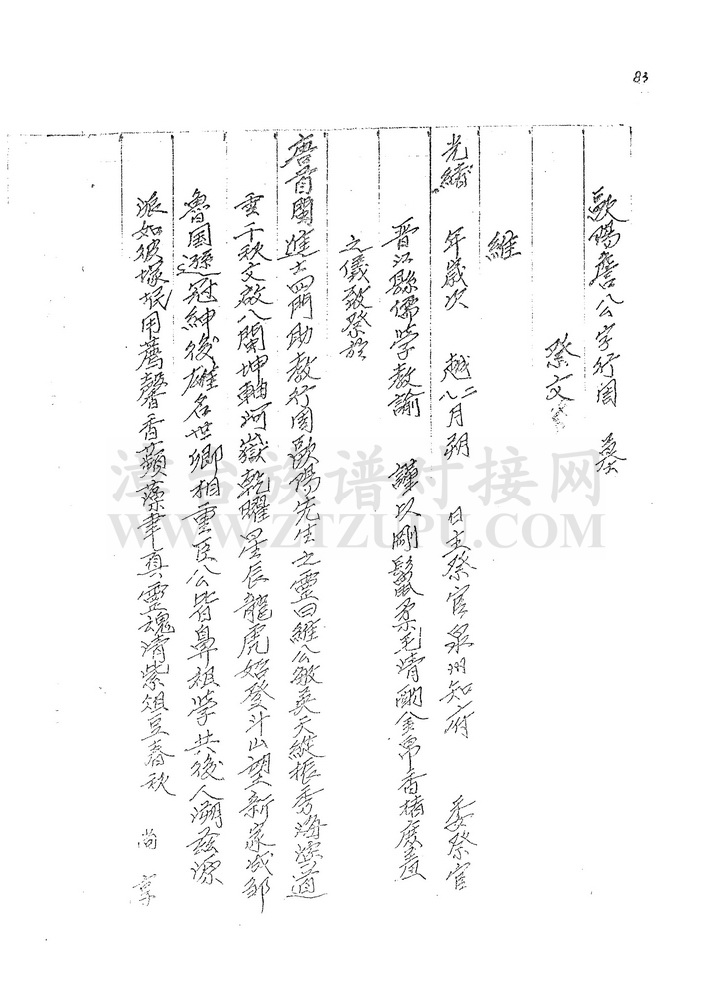 83
歐陽詹公字行周 墓
祭文
維
光緒 年歲次 越二八月朔 日主祭官泉州知府 委祭官
晋江縣儒學教諭 謹以剛鬣柔毛清酌金帛香楮庶羞
之儀致祭於
唐首閩進士四門助教行周歐陽先生之靈曰維公敏英天縱振秀海濱道
重千秋文啟八閩坤軸河嶽乾曜星辰龍虎始登斗山望新家成鄒
魯国遜冠紳後雄名世卿相重臣公皆鼻祖學共後人溯茲源
派如彼塚垊用薦馨香蘋藻聿真靈魂清紫俎豆春秋 尚享
漳台族谱对接网
WWW.ZTZUPU.COM